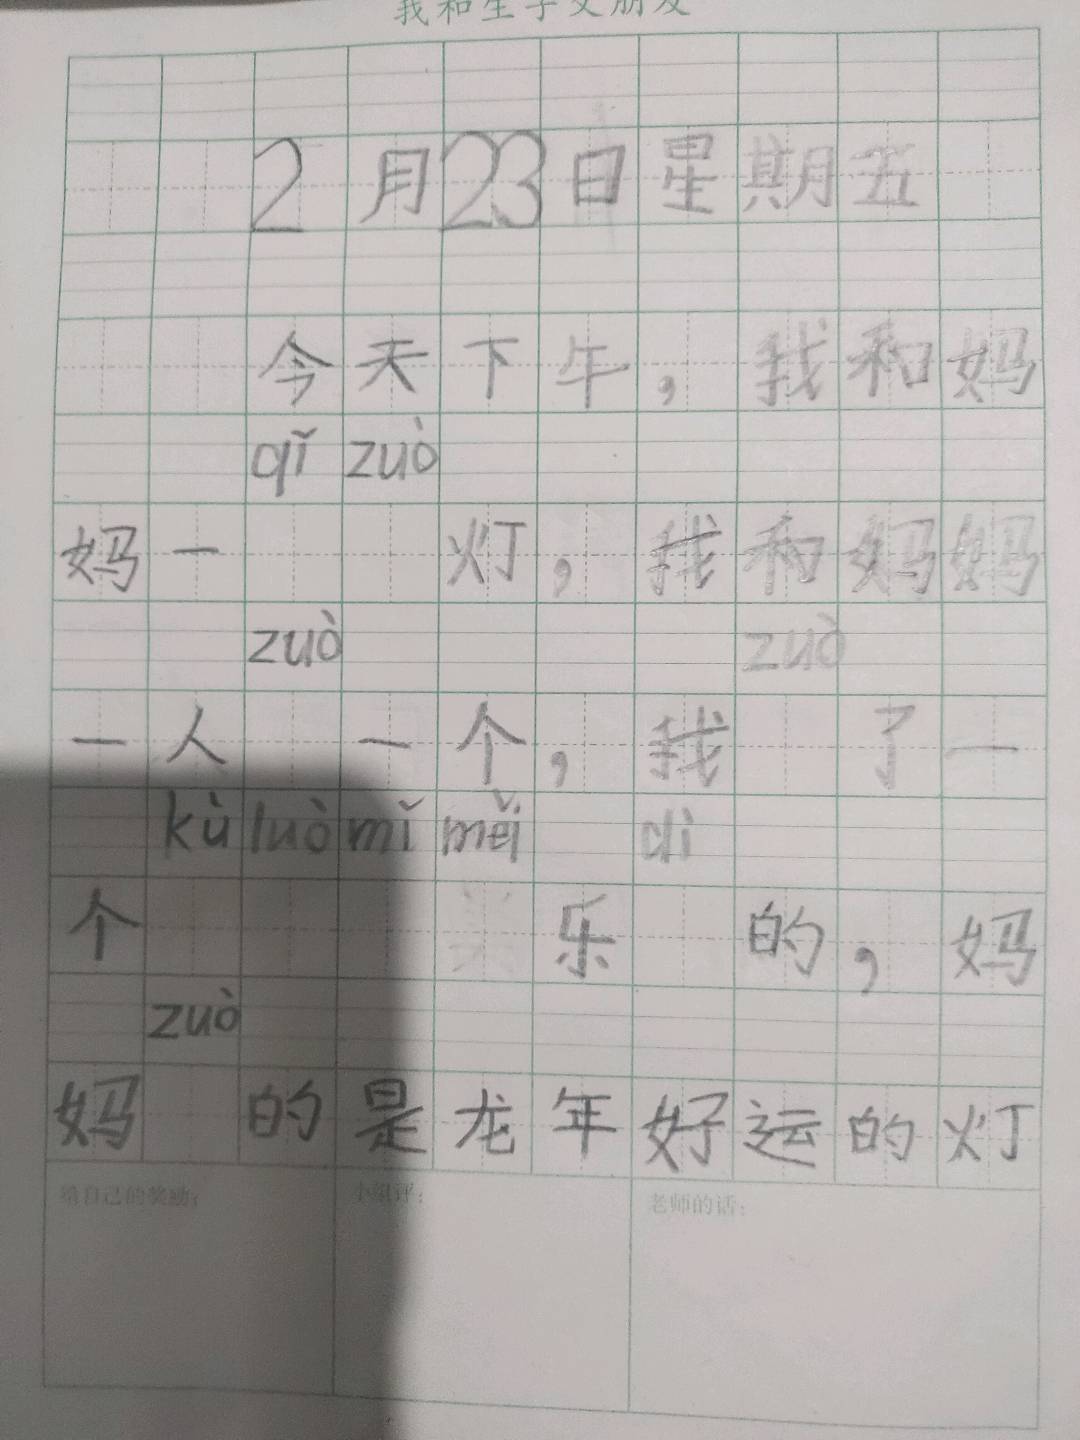 我和生字交朋友
2月23日星期五
今天下午，我和妈
qǐ zuò
妈一 灯，我和妈妈
zuò zuò
一人一个，我 了一
kù luò mǐ měi di
个 乐 的，妈
zuò
妈 的是龙年好运的灯
给自己的奖励： 小组评： 老师的话：